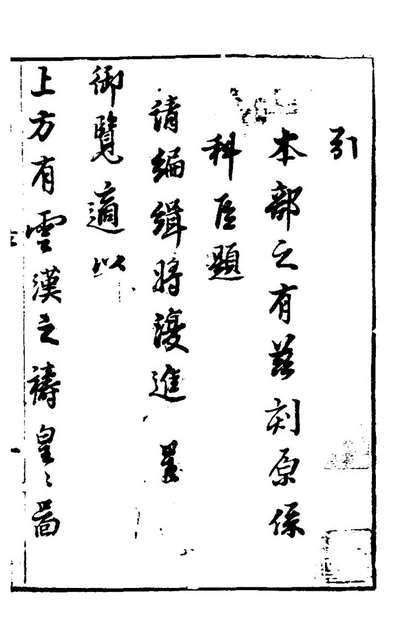 引
本部之有茲刻原係
科臣題
請編緝將進
御覽適以
上方有雲漢之禱皇〻啚